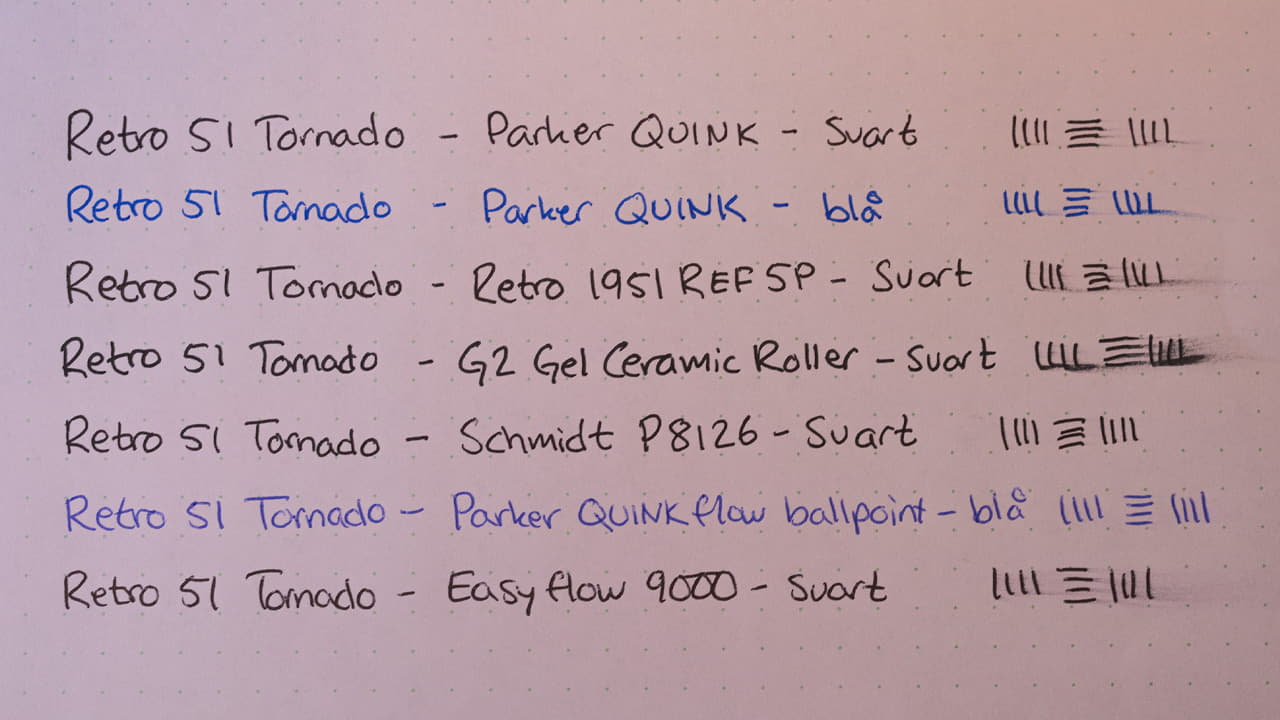 Retro 51 Tornado - Parker QUINK - Svart
Retro 51 Tornado - Parker QUINK - blå
Retro 51 Tornado - Retro 1951 REF 5P - Svart
Retro 51 Tornado - G2 Gel Ceramic Roller - Svart
Retro 51 Tornado - Schmidt P8126 - Svart
Retro 51 Tornado - Parker QUINKflow ballpoint - blå
Retro 51 Tornado - Easyflow 9000 - Svart